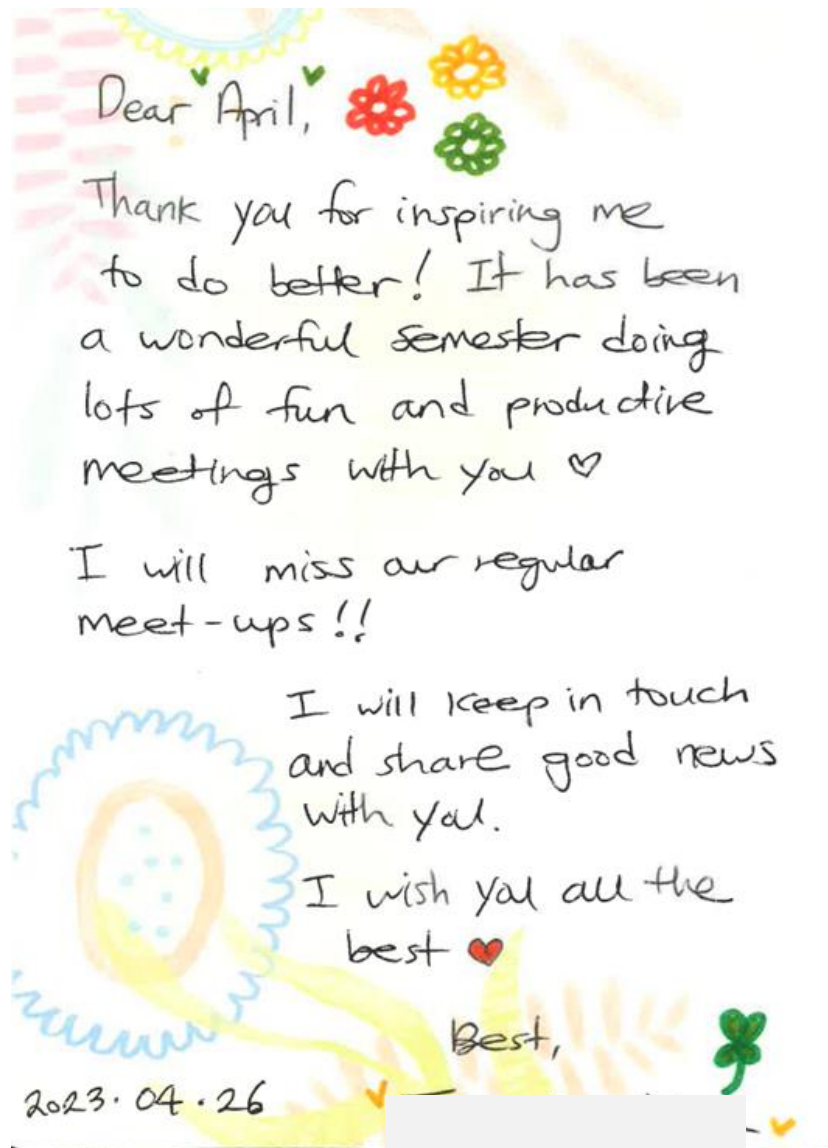 Dear April,
Thank you for inspiring me
to do better! It has been
a wonderful semester doing
lots of fun and productive
meetings with you ♡
I will miss our regular
meet-ups!!
I will keep in touch
and share good news
with you.
I wish you all the
best ❤
Best,
2023.04.26